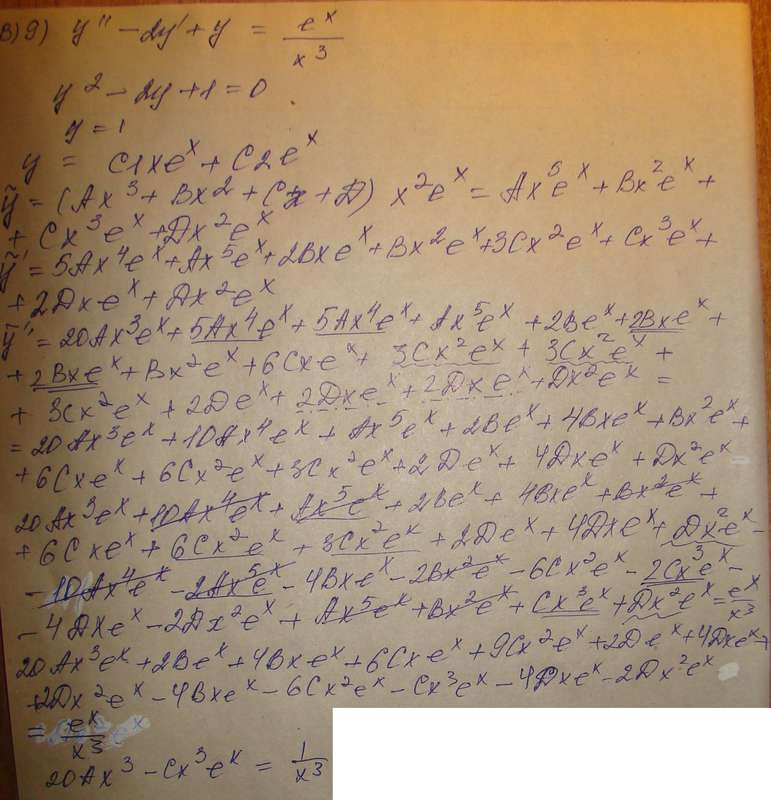 В) 9) y'' - 2y' + y = e^x / x^3
y^2 - 2y + 1 = 0
y = 1
y = C1xe^x + C2e^x
ỹ = (Ax^3 + Bx^2 + Cx + D) x^2e^x = Ax^5e^x + Bx^2e^x +
+ Cx^3e^x + Dx^2e^x
ỹ' = 5Ax^4e^x + Ax^5e^x + 2Bxe^x + Bx^2e^x + 3Cx^2e^x + Cx^3e^x +
+ 2Dxe^x + Dx^2e^x
ỹ'' = 20Ax^3e^x + 5Ax^4e^x + 5Ax^4e^x + Ax^5e^x + 2Be^x + 2Bxe^x +
+ 2Bxe^x + Bx^2e^x + 6Cxe^x + 3Cx^2e^x + 3Cx^2e^x +
+ 3Cx^2e^x + 2De^x + 2Dxe^x + 2Dxe^x + Dx^2e^x =
= 20Ax^3e^x + 10Ax^4e^x + Ax^5e^x + 2Be^x + 4Bxe^x + Bx^2e^x +
+ 6Cxe^x + 6Cx^2e^x + 3Cx^2e^x + 2De^x + 4Dxe^x + Dx^2e^x
20Ax^3e^x + 10Ax^4e^x + Ax^5e^x + 2Be^x + 4Bxe^x + Bx^2e^x +
+ 6Cxe^x + 6Cx^2e^x + 3Cx^2e^x + 2De^x + 4Dxe^x + Dx^2e^x -
- 10Ax^4e^x - 2Ax^5e^x - 4Bxe^x - 2Bx^2e^x - 6Cx^2e^x - 2Cx^3e^x -
- 4Dxe^x - 2Dx^2e^x + Ax^5e^x + Bx^2e^x + Cx^3e^x + Dx^2e^x = e^x / x^3
20Ax^3e^x + 2Be^x + 4Bxe^x + 6Cxe^x + 9Cx^2e^x + 2De^x + 4Dxe^x +
+ 2Dx^2e^x - 4Bxe^x - 6Cx^2e^x - Cx^3e^x - 4Dxe^x - 2Dx^2e^x
= e^x / x^3
20Ax^3 - Cx^3e^x = 1 / x^3